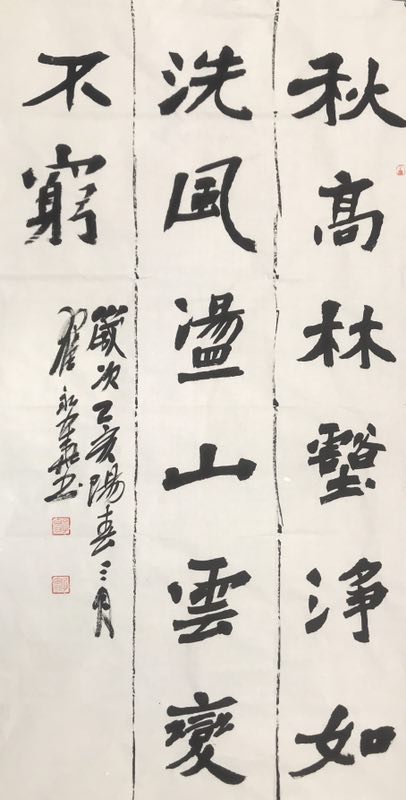 秋高林壑淨如
洗風盪山雲變
不窮
歲次己亥陽春三月
翟永華书